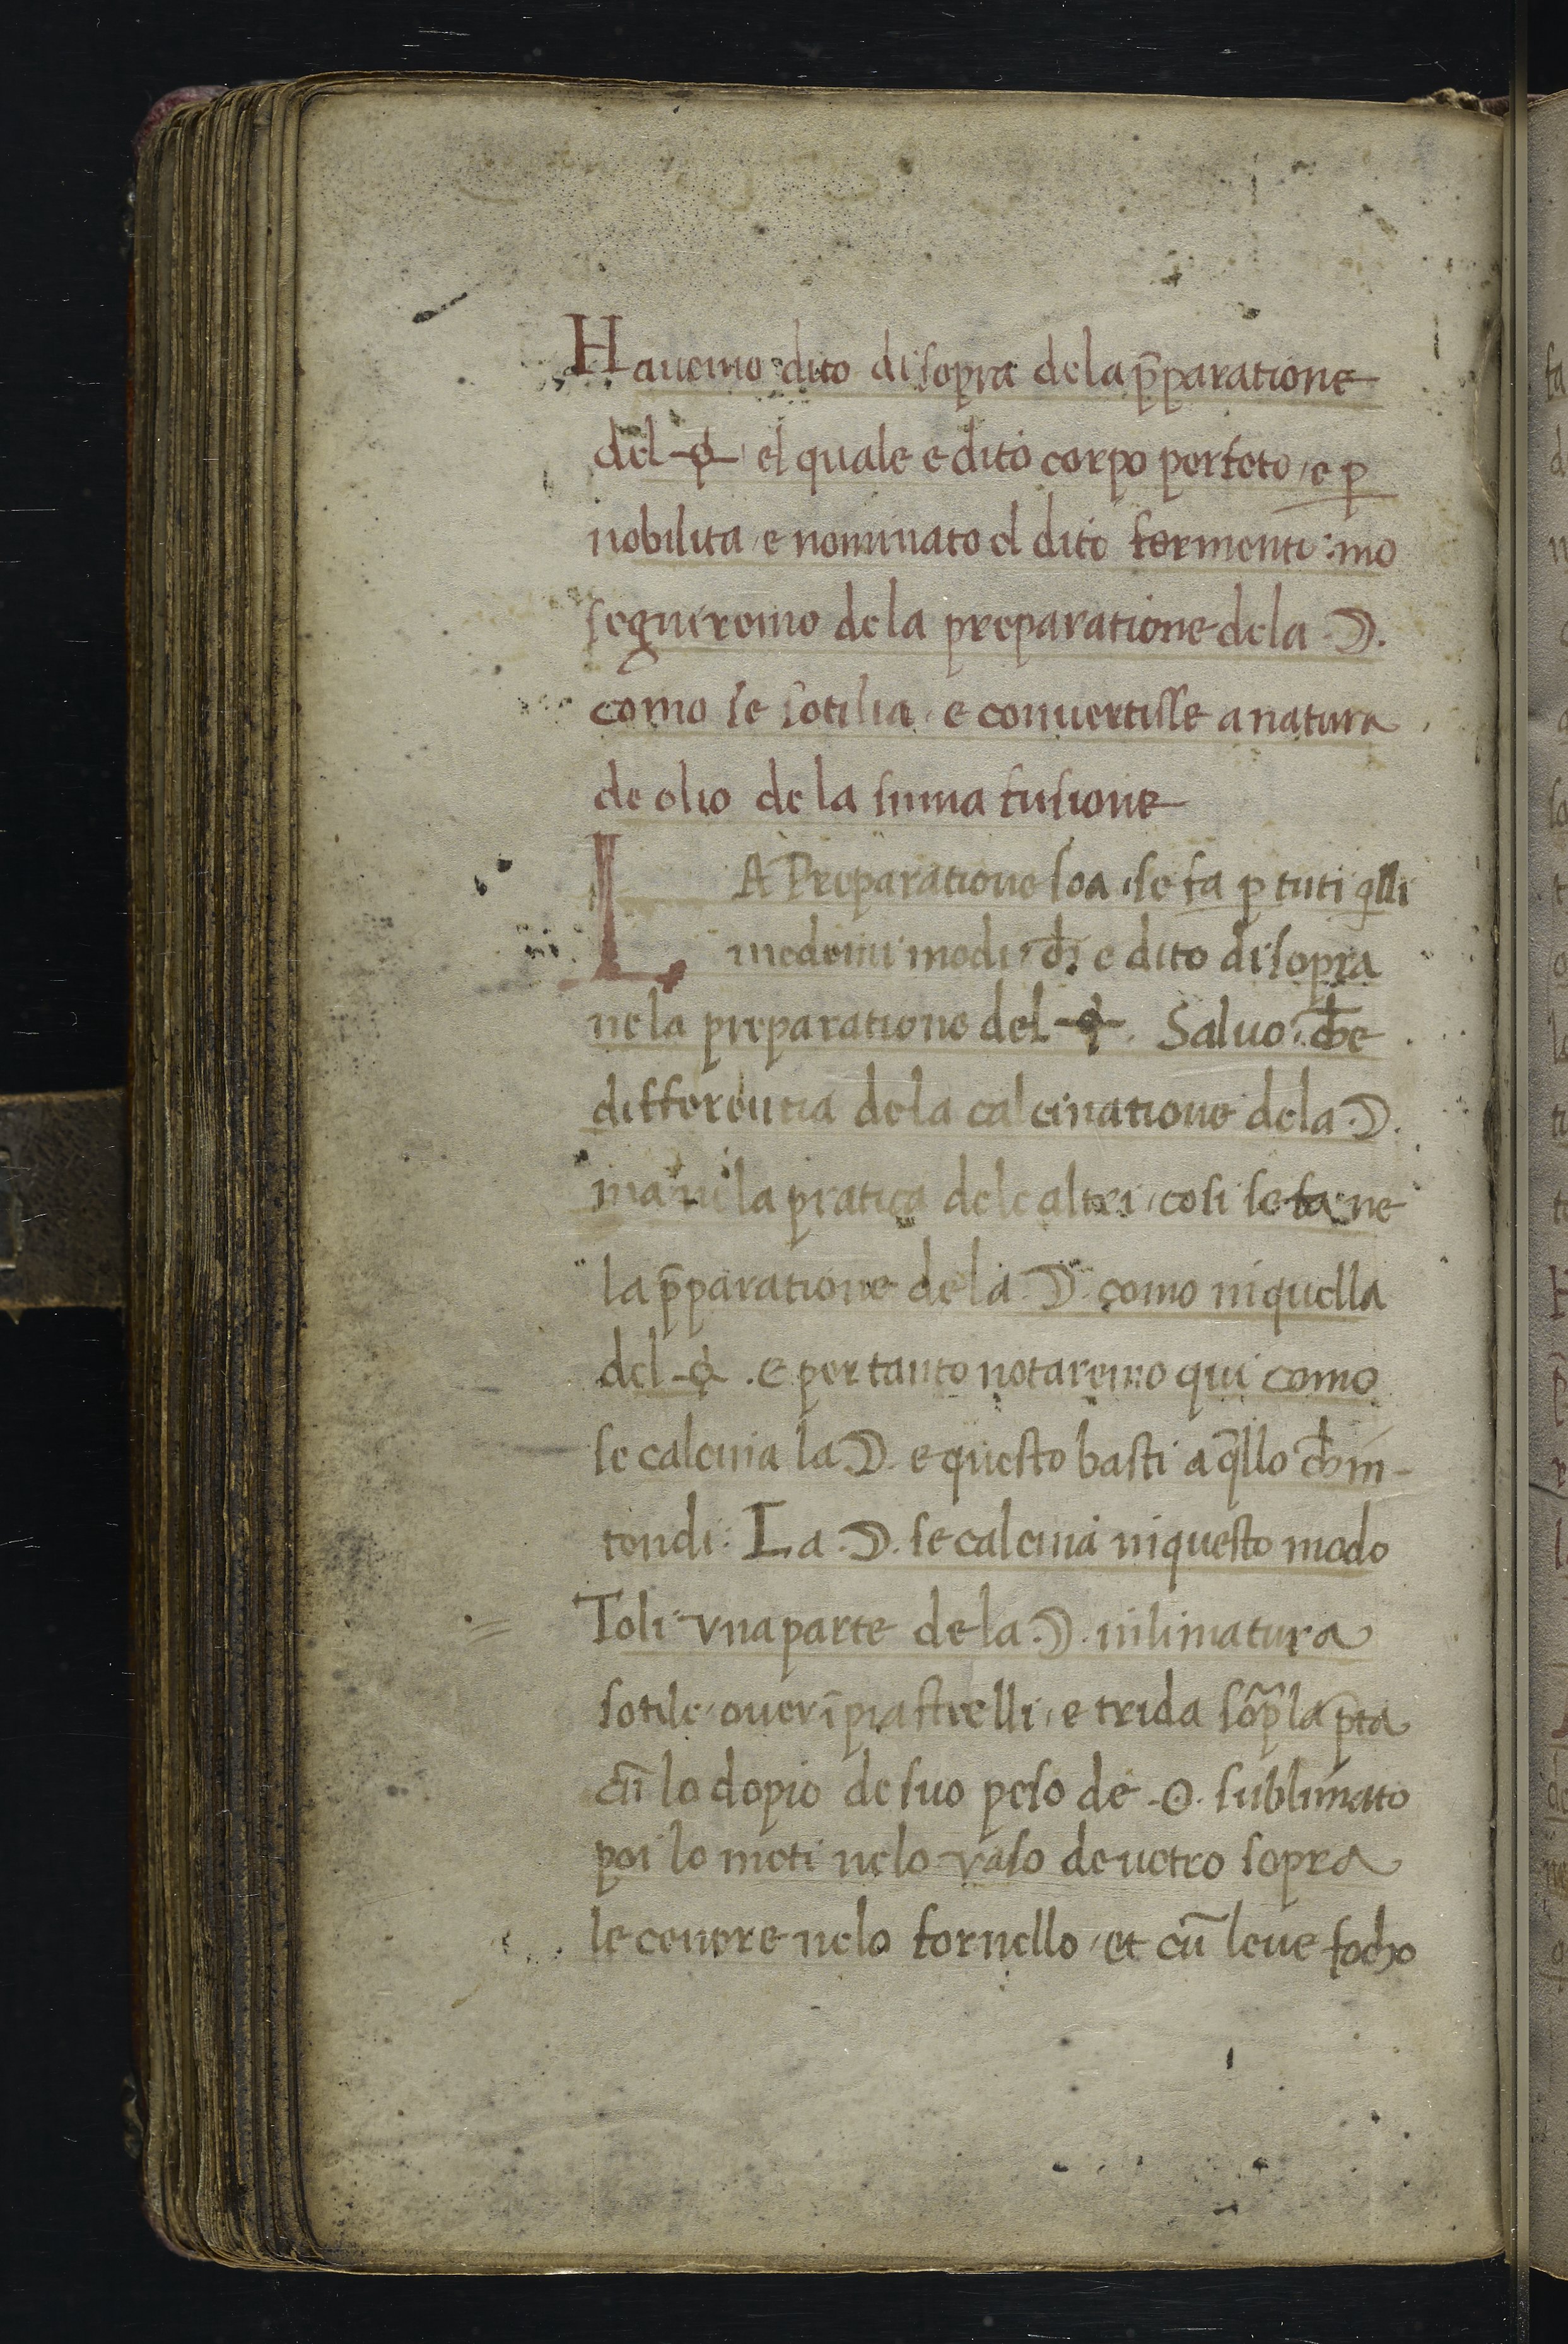 Hauemo dito disopra dela p̄paratione
del ☿ el quale e dito corpo perfeto, e ꝑ
nobilita, e nominato el dito fermenti: mo
seguiremo dela preparatione dela .☽.
como se sotilia, e conuertisse a natura
de olio de la suma fusione
LA Preparatione soa, se fa ꝑ tuti q̄lli
medemi modi, ch̄, e dito disopra
nela preparatione del . Saluo, ch̄e
differentia dela calcinatione dela .☽.
ma ni la pratica dele altri, cosi se fa, ne
la p̄paratione de la .☽. como niquella
del . e per tanto notaremo qui como
se calcina la .☽. e questo basti a q̄llo ch̄ in-
tendi: La .☽. se calcina niquesto modo
Toli vna parte de la .☽. ni limatura
sotile, ouer ī piastrelli, e trida sop̄ la p̄ta
cū lo dopio de suo peso de .☉. sublimato
poi lo meti nelo vaso de uetro sopra
le cenere nelo fornello, et cū leue focho